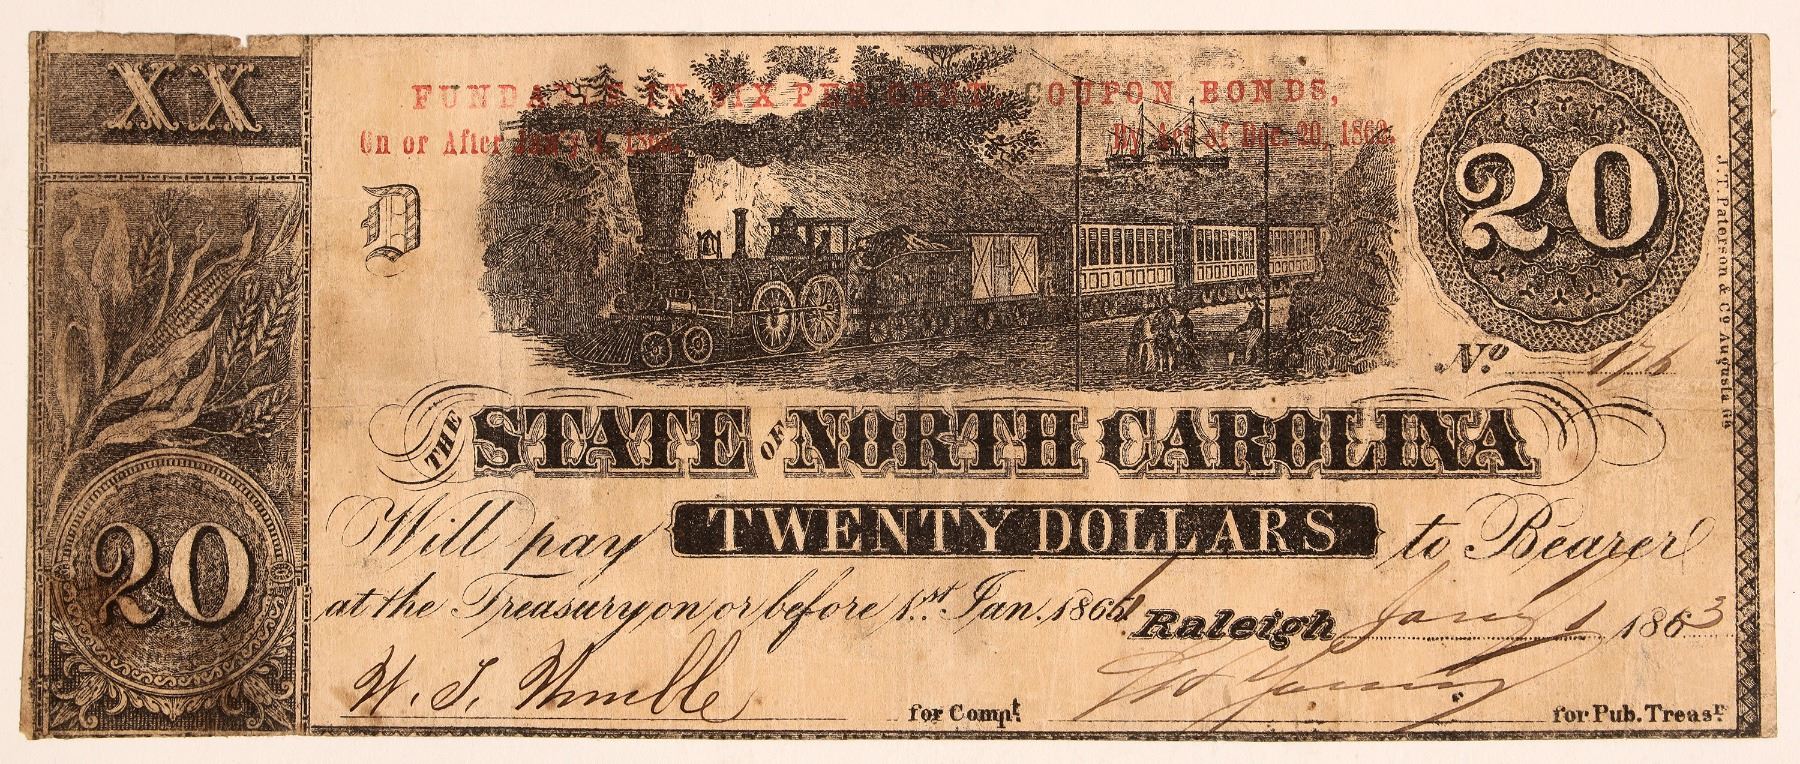 XX
FUNDABLE IN SIX PER CENT. COUPON BONDS,
On or After Jan'y 1, 186
By Act of Dec. 20, 1862.
D
20
No. 176
J. T. Paterson & Co. Augusta Ga
THE STATE OF NORTH CAROLINA
Will pay TWENTY DOLLARS to Bearer
at the Treasury on or before 1st Jan. 1866
Raleigh Jany 1 1863
20
W. J. for Compt.
for Pub. Treasr